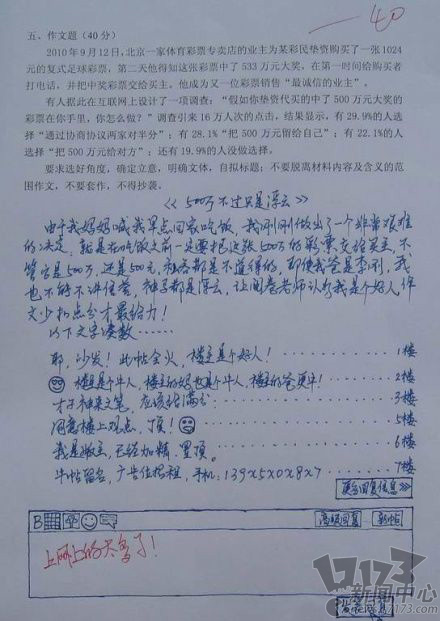 -40
五、作文题（40分）
2010年9月12日，北京一家体育彩票专卖店的业主为某彩民垫资购买了一张1024
元的复式足球彩票，第二天他得知这张彩票中了533万元大奖，在第一时间给购买者
打电话，并把中奖彩票交给买主。他成为又一位彩票销售“最诚信的业主”。
有人据此在互联网上设计了一项调查：“假如你垫资代买的中了500万元大奖的
彩票在你手里，你怎么做？”调查引来16万人次的点击，结果显示，有29.9%的人选
择“通过协商协议两家对半分”；有28.1%“把500万元留给自己”；有22.1%的人
选择“把500万元给对方”；还有19.9%的人没做选择。
要求选好角度，确定立意，明确文体，自拟标题；不要脱离材料内容及含义的范
围作文，不要套作，不得抄袭。
《500万不过只是浮云》
由于我妈妈喊我早点回家吃饭，我刚刚做出了一个非常艰难
的决定，就是在吃饭之前一定要把这张500万的彩票交给买主，不
管它是500万，还是500元，私吞都是不道德的，即使我爸是李刚，我
也不能不讲信誉，神马都是浮云，让阅卷老师认为我是个好人，作
文少扣点分才最给力！
以下文字凑数……
耶，沙发！此帖会火，楼主是个好人！ 1楼
楼主是个牛人，楼主的妈也是个牛人，楼主的爸更牛！ 2楼
才子神来之笔，应该给满分 3楼
同意楼上观点，顶！ 5楼
我是版主，已经加精、置顶。 6楼
牛帖留名，广告位招租，手机：139x5x0x8x7 7楼
更多回复信息>>
B
高级回复 新帖
上网上的太多了！
17173
新闻中心
news.17173.com